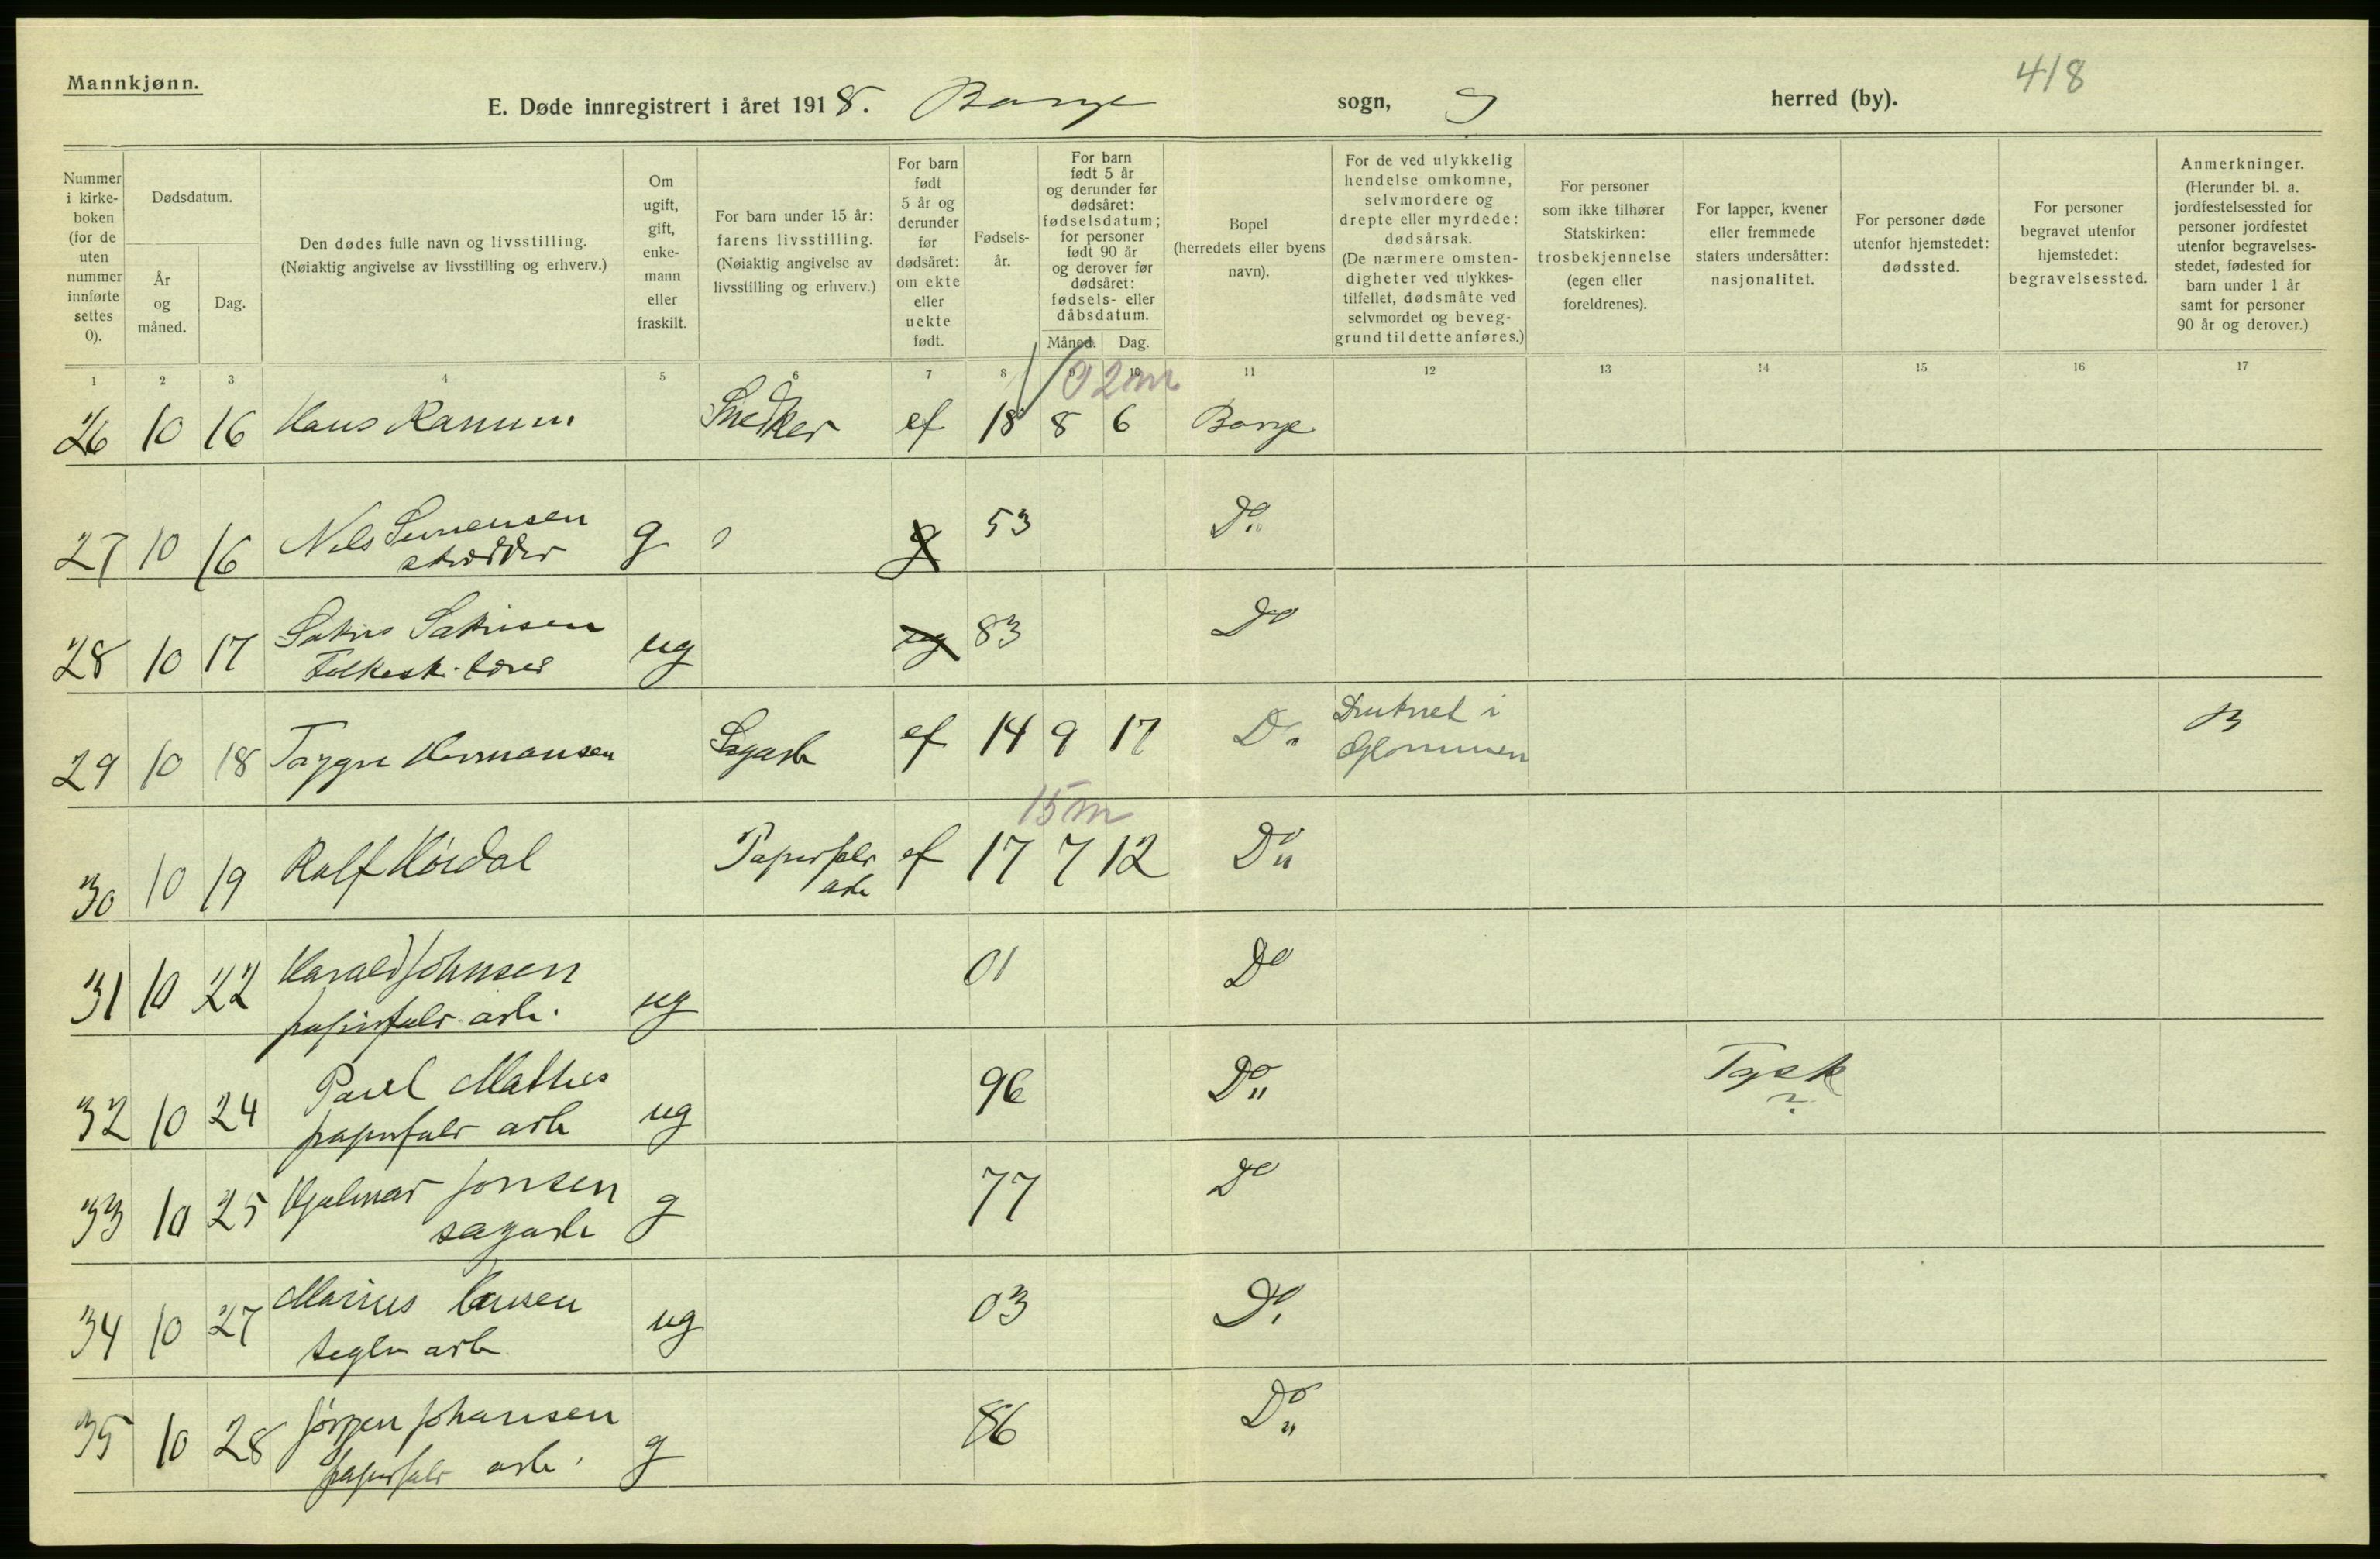 Mannkjønn.
418
E. Døde innregistrert i året 1918. Borge sogn, herred (by).
Nummer i kirke-boken (for de uten nummer innførte settes 0).
Dødsdatum.
År og måned.
Dag.
Den dødes fulle navn og livsstilling.
(Nøiaktig angivelse av livsstilling og erhverv.)
Om ugift, gift, enke-mann eller fraskilt.
For barn under 15 år: farens livsstilling. (Nøiaktig angivelse av livsstilling og erhverv.)
For barn født 5 år og derunder før dødsåret: om ekte eller uekte født.
Fødsels-år.
For barn født 5 år og derunder før dødsåret: fødselsdatum; for personer født 90 år og derover før dødsåret: fødsels- eller dåbsdatum.
Måned. Dag.
Bopel (herredets eller byens navn).
For de ved ulykkelig hendelse omkomne, selvmordere og drepte eller myrdede: dødsårsak. (De nærmere omsten-digheter ved ulykkes-tilfellet, dødsmåte ved selvmordet og beveg-grund til dette anføres.)
For personer som ikke tilhører Statskirken: trosbekjennelse (egen eller foreldrenes).
For lapper, kvener eller fremmede staters undersåtter: nasjonalitet.
For personer døde utenfor hjemstedet: dødssted.
For personer begravet utenfor hjemstedet: begravelsessted.
Anmerkninger. (Herunder bl. a. jordfestelsessted for personer jordfestet utenfor begravelses-stedet, fødested for barn under 1 år samt for personer 90 år og derover.)
1 2 3 4 5 6 7 8 9 10 11 12 13 14 15 16 17
02m
26 10 16 Hans Ranum Snedker ef 18 8 6 Borge
27 10 16 Nils Simensen g g 53 Do
skrædder
28 10 17 ug ug 83 Do
Folkesk. lærer
29 10 18 Trygve Hermansen Sagarb ef 14 9 17 Do Druknet i B
Glommen
15m
30 10 19 Rolf Hördal Papirfabr ef 17 7 12 Do
arb
31 10 22 Harald Johnsen ug 01 Do
papirfabr. arb.
32 10 24 Paul Mathes ug 96 Do Tysk
papirfabr arb ?
33 10 25 Hjalmar Jonsen g 77 Do
sagarb
34 10 27 Marius Hansen ug 03 Do
teglv arb
35 10 28 Jörgen Johansen g 86 Do
papirfabr arb.